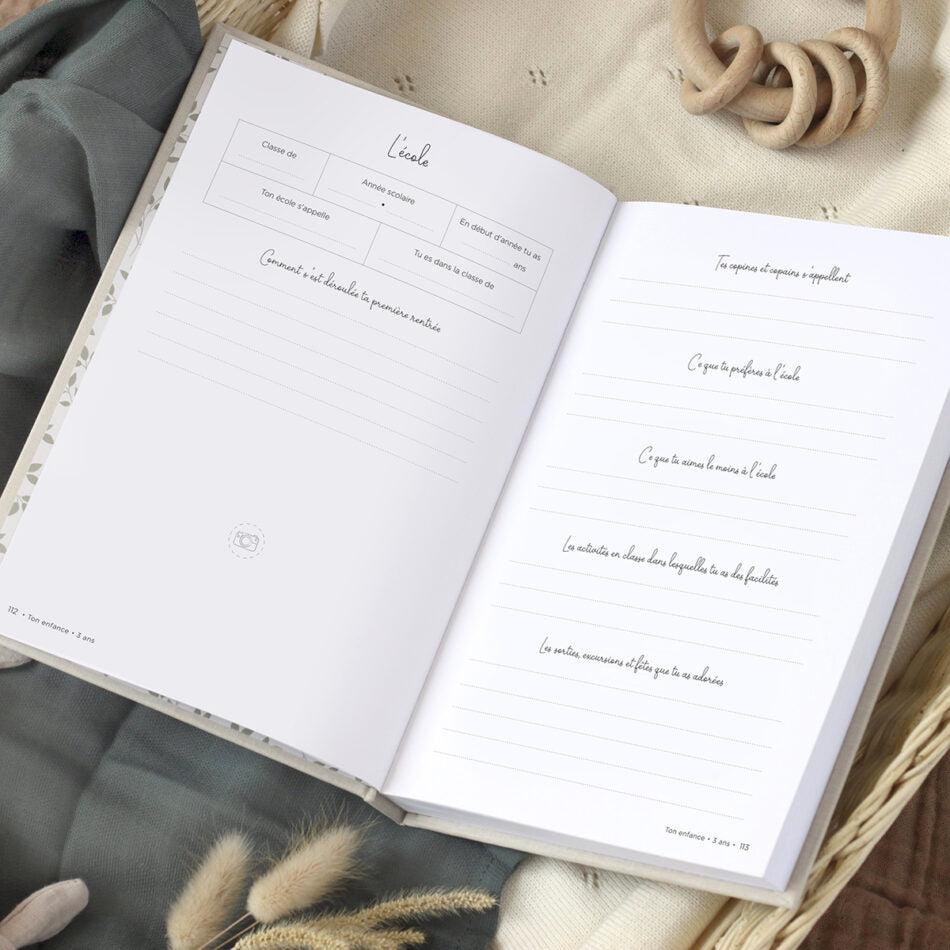 L'école
Classe de
Année scolaire
En début d'année tu as
ans
Ton école s'appelle
Tu es dans la classe de
Comment s'est déroulée ta première rentrée
112 • Ton enfance • 3 ans
Tes copines et copains s'appellent
Ce que tu préfères à l'école
Ce que tu aimes le moins à l'école
Les activités en classe dans lesquelles tu as des facilités
Les sorties, excursions et fêtes que tu as adorées
Ton enfance • 3 ans • 113